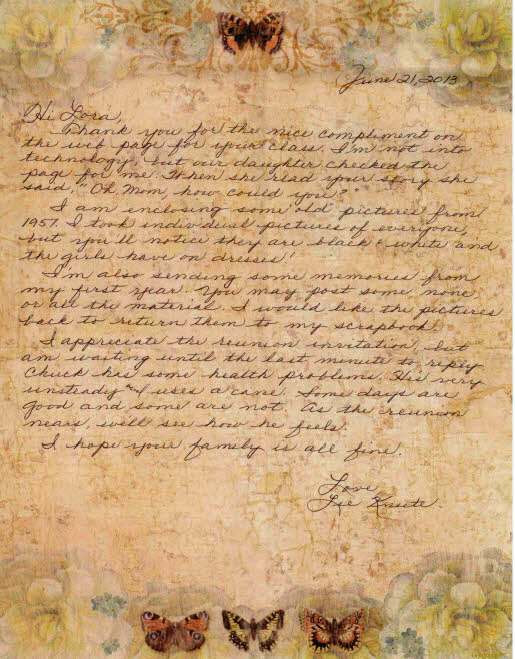 June 21, 2013
Hi Lora,
Thank you for the nice compliment on
the web page for your class. I'm not into
technology, but our daughter checked the
page for me. When she read your story she
said, "Oh Mom, how could you?"
I am enclosing some old pictures from
1957. I took individual pictures of everyone,
but you'll notice they are black & white and
the girls have on dresses!
I'm also sending some memories from
my first year. You may post some none
or all the material. I would like the pictures
back to return them to my scrapbook.
I appreciate the reunion invitation, but
am waiting until the last minute to reply.
Chuck has some health problems. His very
unsteady and uses a cane. Some days are
good and some are not. As the reunion
nears, we'll see how he feels.
I hope your family is all fine.
Love